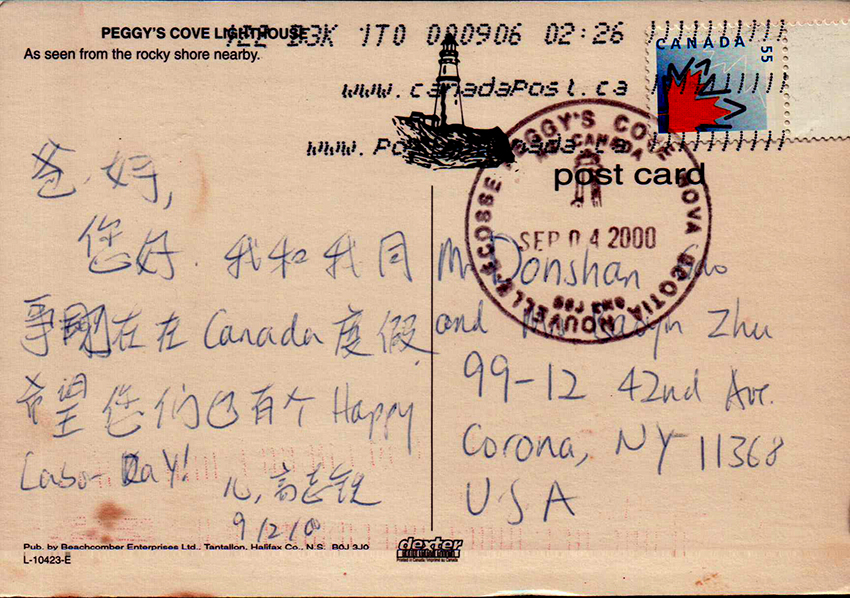 PEGGY'S COVE LIGHTHOUSE
As seen from the rocky shore nearby.
B3K 1T0 000906 02:26
www.canadaPost.ca
CANADA
55
post card
PEGGY'S COVE NOVA SCOTIA
NOUVELLE-ÉCOSSE
CANADA
SEP 04 2000
爸.妈,
您好.我和我同
事现在在Canada度假
希望您们也有个Happy
Labor Day!
儿,高志锐
9/2/00
Mr. Donshan Gao
and Zhu
99-12 42nd Ave.
Corona, NY 11368
USA
Pub. by Beachcomber Enterprises Ltd., Tantallon, Halifax Co., N.S. B0J 3J0
L-10423-E
dexter
Printed in Canada/Imprimé au Canada